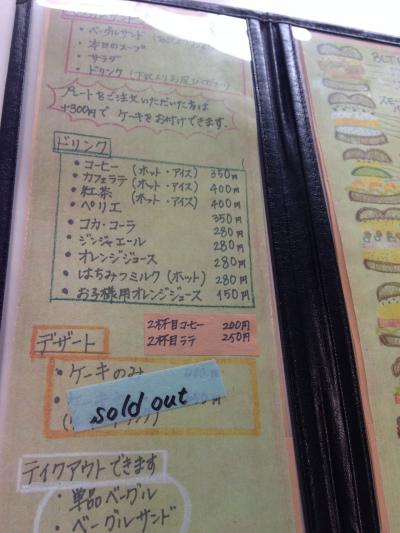 ・ベーグルサンド
・本日のスープ
・サラダ
・ドリンク (下記よりお選びください)
プレートをご注文いただいた方は
+300円で ケーキをお付けできます。
ドリンク
・コーヒー (ホット・アイス) 350円
・カフェラテ (ホット・アイス) 400円
・紅茶 (ホット・アイス) 400円
・ペリエ 350円
・コカ・コーラ 280円
・ジンジャエール 280円
・オレンジジュース 280円
・はちみつミルク (ホット) 280円
・お子様用オレンジジュース 150円
2杯目コーヒー 200円
2杯目ラテ 250円
デザート
・ケーキのみ
・ケーキ
sold out
テイクアウトできます
・単品ベーグル
・ベーグルサンド
BLT
スモー